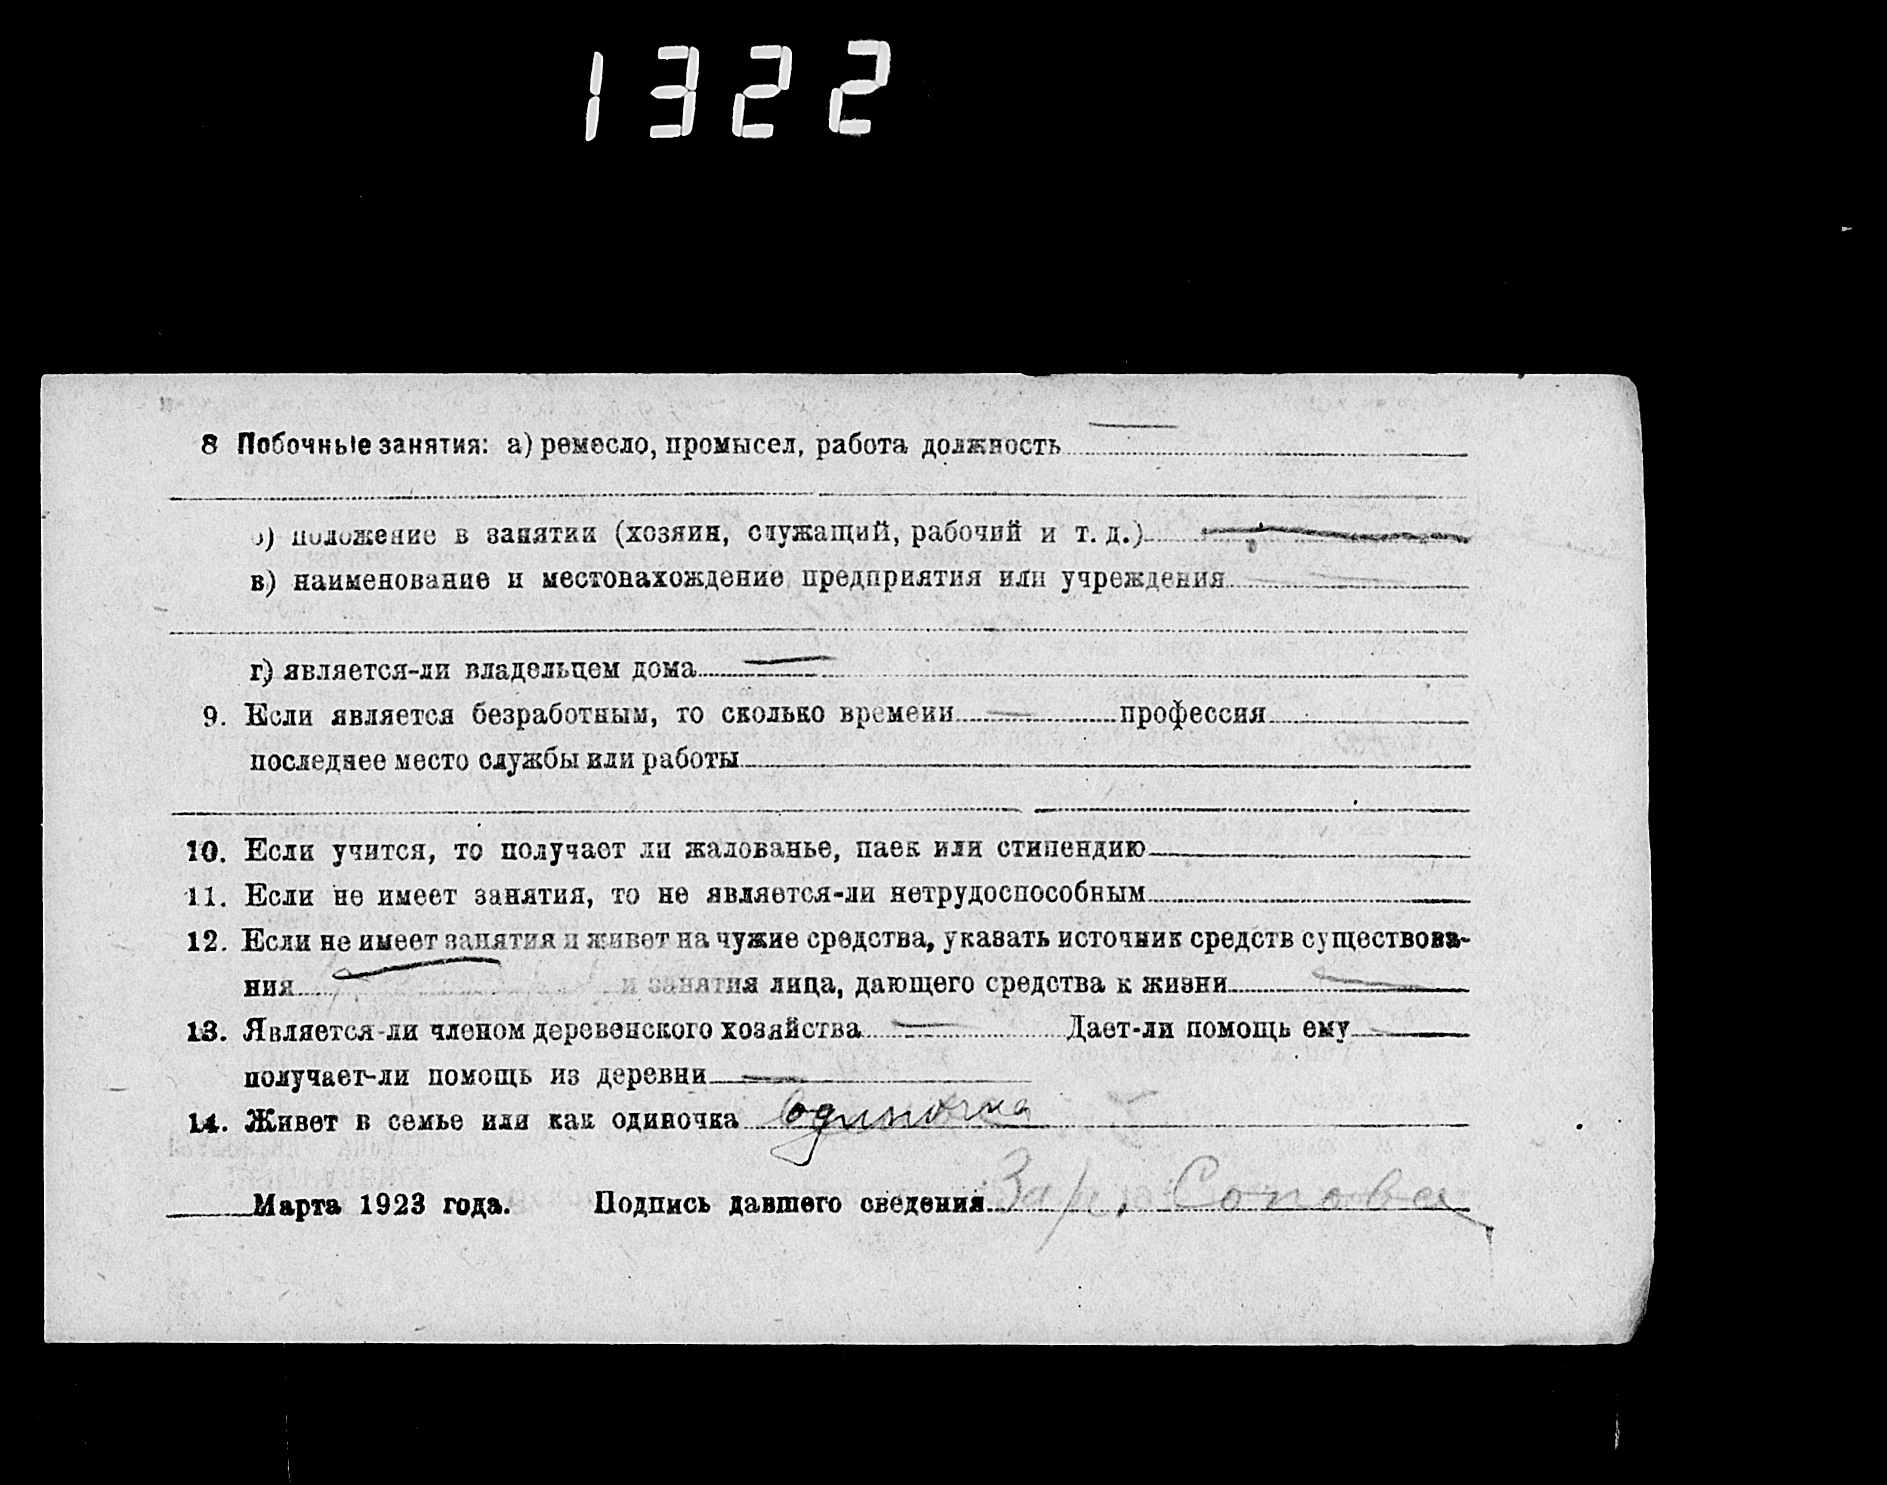 1322
8 Побочные занятия: а) ремесло, промысел, работа должность —
б) положение в занятии (хозяин, служащий, рабочий и т. д.) —
в) наименование и местонахождение предприятия или учреждения —
г) является-ли владельцем дома —
9. Если является безработным, то сколько времени — профессия
последнее место службы или работы
10. Если учится, то получает ли жалованье, паек или стипендию
11. Если не имеет занятия, то не является-ли нетрудоспособным
12. Если не имеет занятия и живет на чужие средства, указать источник средств существова-
ния — и занятия лица, дающего средства к жизни —
13. Является-ли членом деревенского хозяйства — Дает-ли помощь ему —
получает-ли помощь из деревни —
14. Живет в семье или как одиночка одиночка
Марта 1923 года. Подпись давшего сведения Сопова